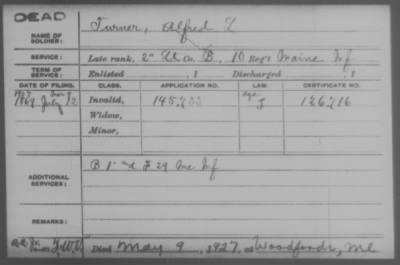 DEAD
NAME OF SOLDIER: Turner, Alfred L
SERVICE: Late rank, 2" Lt Co. B, 10 Reg't Maine Inf
TERM OF SERVICE: Enlisted , 1 Discharged , 1
DATE OF FILING. CLASS. APPLICATION NO. LAW. CERTIFICATE NO.
1869 July 12 Invalid, 145,733 J 126,716
Widow,
Minor,
ADDITIONAL SERVICES: B 1" and F 29 Me Inf
REMARKS:
Died May 9, 1927, at Woodfords, Me